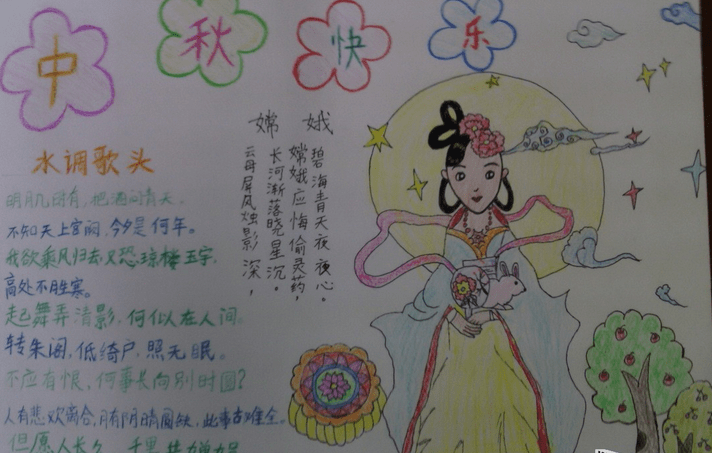 中秋快乐
水调歌头
明月几时有，把酒问青天。
不知天上宫阙，今夕是何年。
我欲乘风归去又恐琼楼玉宇，
高处不胜寒。
起舞弄清影，何似在人间。
转朱阁，低绮户，照无眠。
不应有恨，何事长向别时圆？
人有悲欢离合，月有阴晴圆缺，此事古难全。
但愿人长久，千里共婵娟
嫦娥
云母屏风烛影深，
长河渐落晓星沉。
嫦娥应悔偷灵药，
碧海青天夜夜心。